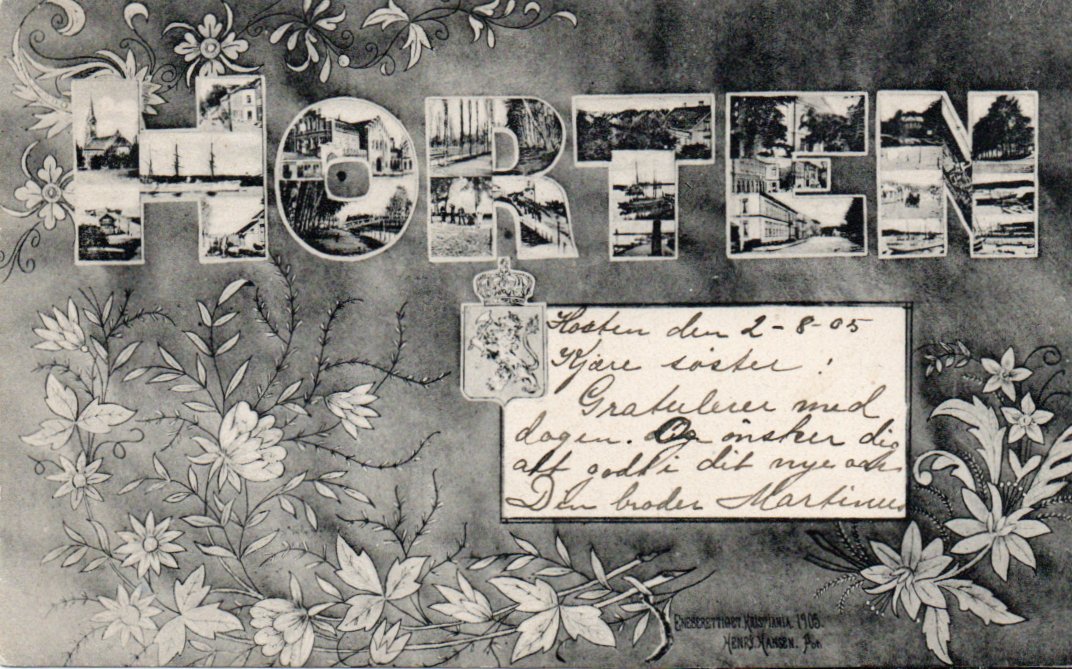 HORTEN
Horten den 2-8-05
Kjære søster!
Gratulerer med
dagen. Og ønsker dig
alt godt i dit nye
Din broder Martinus
ENEBERETTIGET KRISTIANIA 1903.
HENRY HANSEN.